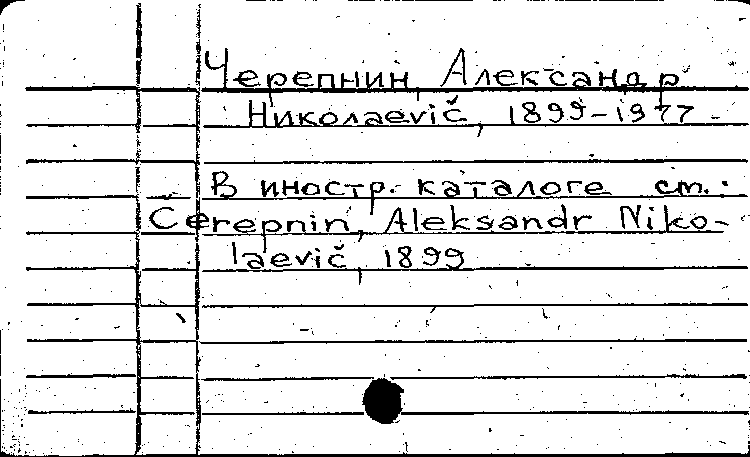 Черепнин, Александр
Николаеvič, 1899-1977
В иностр. каталоге см.:
Čerepnin, Aleksandr Niko-
laevič, 1899